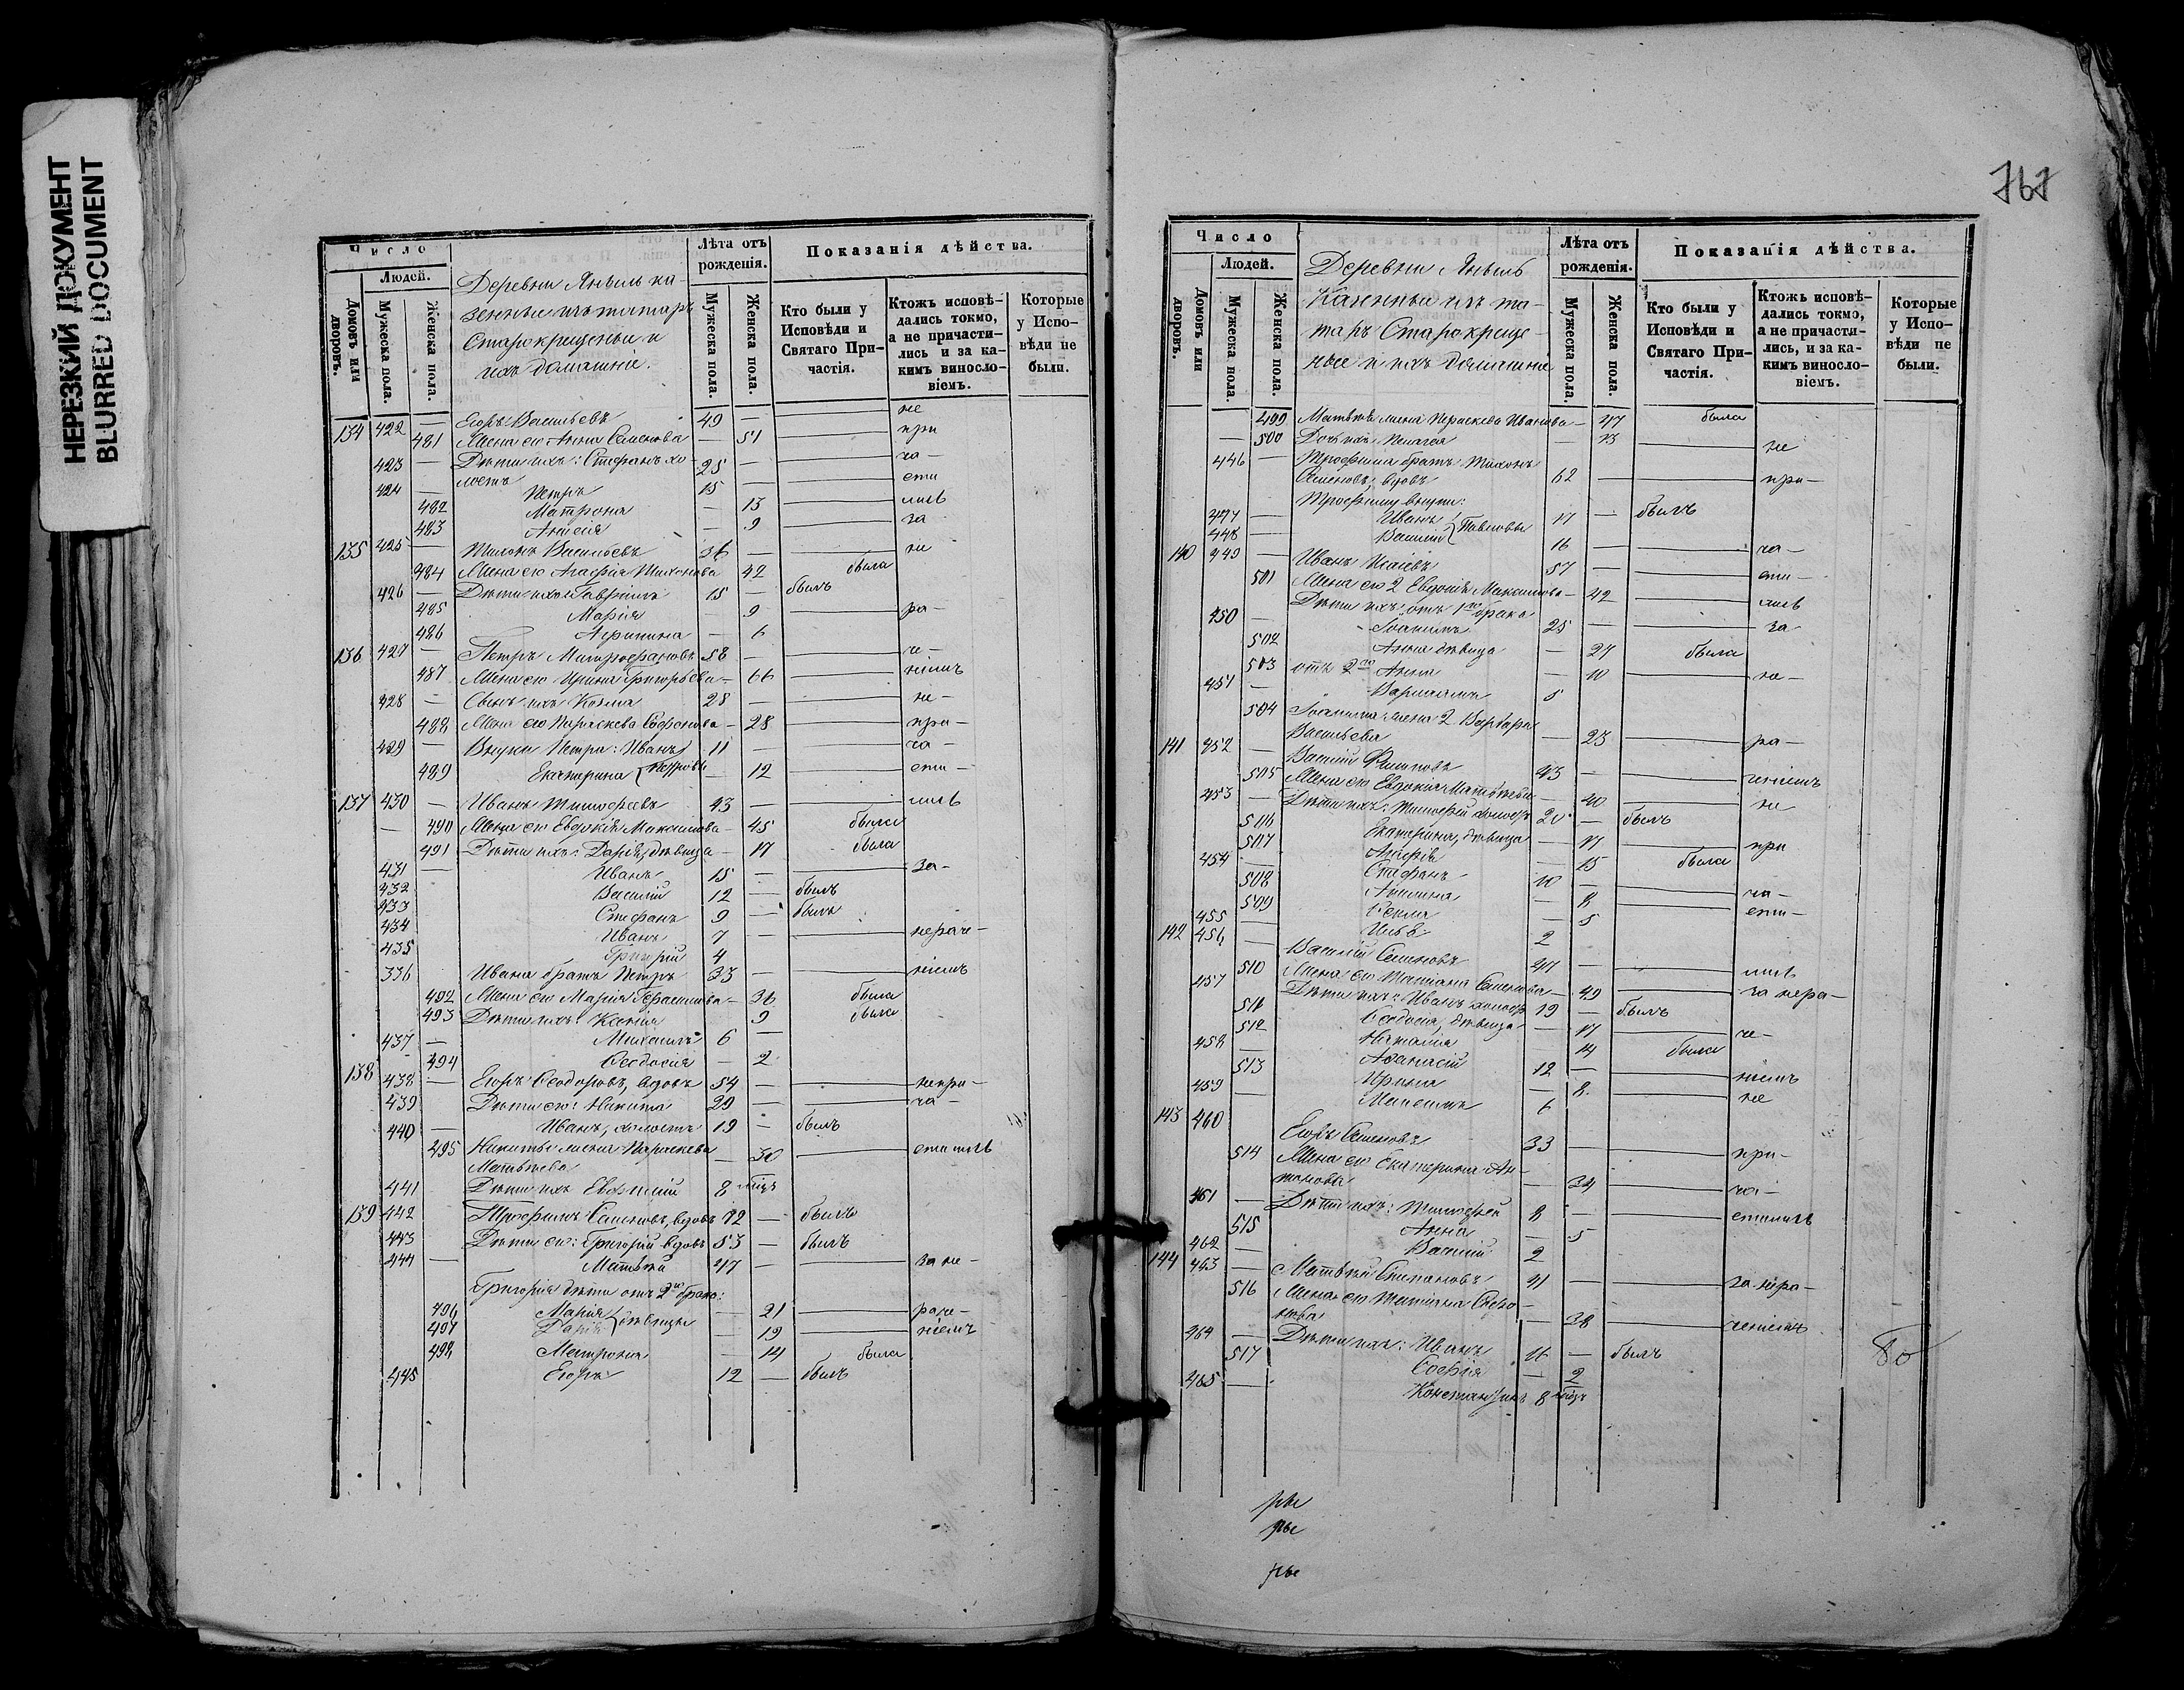 НЕРЕЗКИЙ ДОКУМЕНТ
BLURRED DOCUMENT
Число
Людей.
Домовъ или дворовъ.
Мужеска пола.
Женска пола.
Деревни Яныль ка-
зенные изъ татаръ
Старокрещеные и
ихъ домашніе.
Лѣта отъ рожденія.
Мужеска пола.
Женска пола.
Показанія дѣйства.
Кто были у Исповѣди и Святаго При-частія.
Ктожъ исповѣ-дались токмо, а не причасти-лись и за ка-кимъ винослο-віемъ.
Которые у Испо-вѣди не были.
134 422 — Егоръ Васильевъ 49 — не
481 Жена его Анна Семенова — 51 при
423 — Дѣти ихъ: Стефанъ хо- 25 — ча-
лостъ сти
424 — Петръ 15 —
482 Матрона — 13 лись
483 Анисія — 9 за
135 425 — Тихонъ Васильевъ 36 — не
484 Жена его Агафія Тихонова 42 была
426 — Дѣти ихъ: Гавріилъ 15 — былъ
485 Марія 9 ра-
486 Агрипина — 6
136 427 — Петръ Митрофановъ 58 — че-
487 Жена его Ирина Григорьева — 66 ніемъ
428 — Сынъ ихъ Козма 28 — не-
488 Жена его Параскева Софонова — 28 при-
429 — Внуки Петра: Иванъ 11 — ча-
489 Екатерина Петровы — 12 сти-
137 430 — Иванъ Тимофеевъ 43 — лись
— 490 Жена его Евдокія Максимова — 45 была
491 Дѣти ихъ: Дарія, дѣвица — 17 была
431 — Иванъ 15 — за-
432 Василій 12 — былъ
433 Стефанъ 9 — былъ
434 Иванъ 7 — нераче-
435 Григорій 4
336 Ивана братъ Петръ 33 — ніемъ
492 Жена его Марія Герасимова — 36 была
493 Дѣти ихъ: Ксенія 9 была
437 — Михаилъ 6 —
494 Ѳеодосія — 2
138 438 — Егоръ Ѳеодоровъ, вдовъ 54 — непри-
439 Дѣти его: Никита 29 — ча-
440 — Иванъ, холостъ 19 — былъ
495 Никиты жена Параскева — 30 стились
Матвѣева
441 Дѣти ихъ Евфимій 8 мѣсц
139 442 Трофимъ Семеновъ, вдовъ 72 — былъ
443 Дѣти его: Григорій вдовъ 53 — былъ
444 — Матвѣй 47 — за не-
Григорія дѣти отъ 2го брака:
496 Марія — 21 раче-
497 Дарія дѣвицы — 19 ніемъ
498 Матрона — 14 была
445 Егоръ 12 — былъ
767
Число
Людей.
Домовъ или дворовъ.
Мужеска пола.
Женска пола.
Деревни Яныль
Казенные изъ та-
таръ Старокреще-
ные и ихъ домашніе
Лѣта отъ рожденія.
Мужеска пола.
Женска пола.
Показанія дѣйства.
Кто были у Исповѣди и Святаго При-частія.
Ктожъ исповѣ-дались токмо, а не причасти-лись, и за ка-кимъ винослο-віемъ.
Которые у Испо-вѣди не были.
499 Матвѣя жена Параскева Иванова — 47 была
— 500 Дочь ихъ Пелагея — 13 не
446 — Трофима братъ Тихонъ
Семеновъ, вдовъ 62 — при-
Трофиму внуки:
447 — Иванъ 17 — былъ
448 — Василій Павловы 16 — ча-
140 449 — Иванъ Исаевъ 57 — сти-
501 Жена его 2 Евдокія Максимова — 42 лись
Дѣти ихъ отъ 1го брака
450 — Іоакимъ 25 — за
502 Анна дѣвица — 27 была
503 отъ 2го Анна — 10 не-
451 — Варлаамъ 5
504 Іоакима жена 2 Варвара
Васильева — 23 ра-
141 452 — Василій Филиповъ 43 — ченіемъ
505 Жена его Евдокія Матвѣева — 40 не
453 — Дѣти ихъ: Тимофей холостъ 20 — былъ
506 Екатерина, дѣвица — 17 при
507 Агафія — 15 была
454 — Стефанъ 10 — ча-
508 Акилина — 8 сти-
509 Ѳекла — 5
455 Илья 2
142 456 — Василій Семеновъ 47 — лись
510 Жена его Татіана Семенова — 49 за нера-
457 Дѣти ихъ: Иванъ холостъ 19 — былъ
511 Ѳеодосія, дѣвица — 17 че-
512 Наталія — 14 была
458 — Афанасій 12 — ніемъ
513 Ирина — 8 не
459 — Максимъ 6
143 460 Егоръ Семеновъ 33 — при-
514 Жена его Екатерина Ан-
тонова — 34 ча-
461 — Дѣти ихъ: Тимофей 8 — стились
515 Анна — 5
462 — Василій 2
144 463 — Матвѣй Степановъ 41 — за нера-
516 Жена его Татіана Софо-
нова — 38 ченіемъ
464 — Дѣти ихъ: Иванъ 16 — былъ
517 Софія — 2
465 — Константинъ 8 мѣсц
80